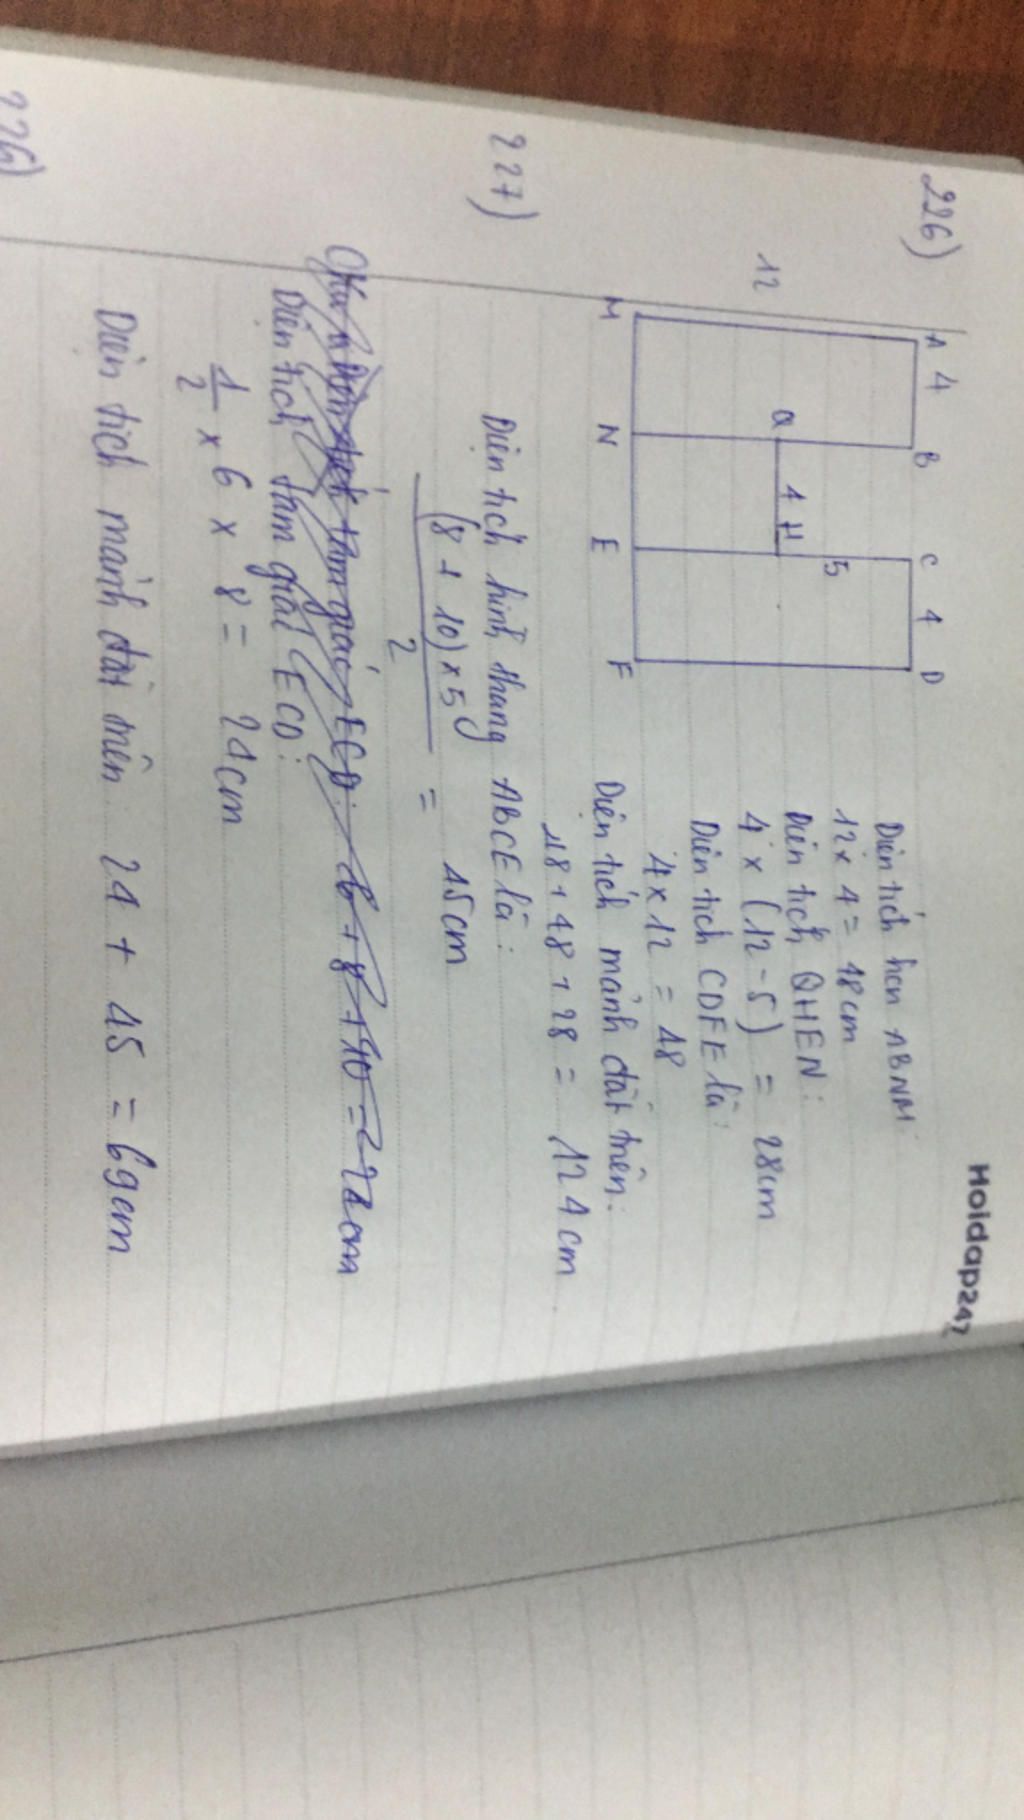 Hoidap247
226)
A 4 B C 4 D
5
12
Q 4 H
M N E F
Diện tích hcn ABNM:
12 x 4 = 48cm
Diện tích QHEN:
4 x (12 - 5) = 28cm
Diện tích CDFE là:
4 x 12 = 48
Diện tích mảnh đất trên:
48 + 48 + 28 = 124cm
227)
Diện tích hình thang ABCE là:
(8 + 10) x 5 / 2 = 45cm
tam giác ECD: 6 + 8 + 10 = 24cm
Diện tích tam giác ECD:
1/2 x 6 x 8 = 24cm
Diện tích mảnh đất trên: 24 + 45 = 69cm
226)